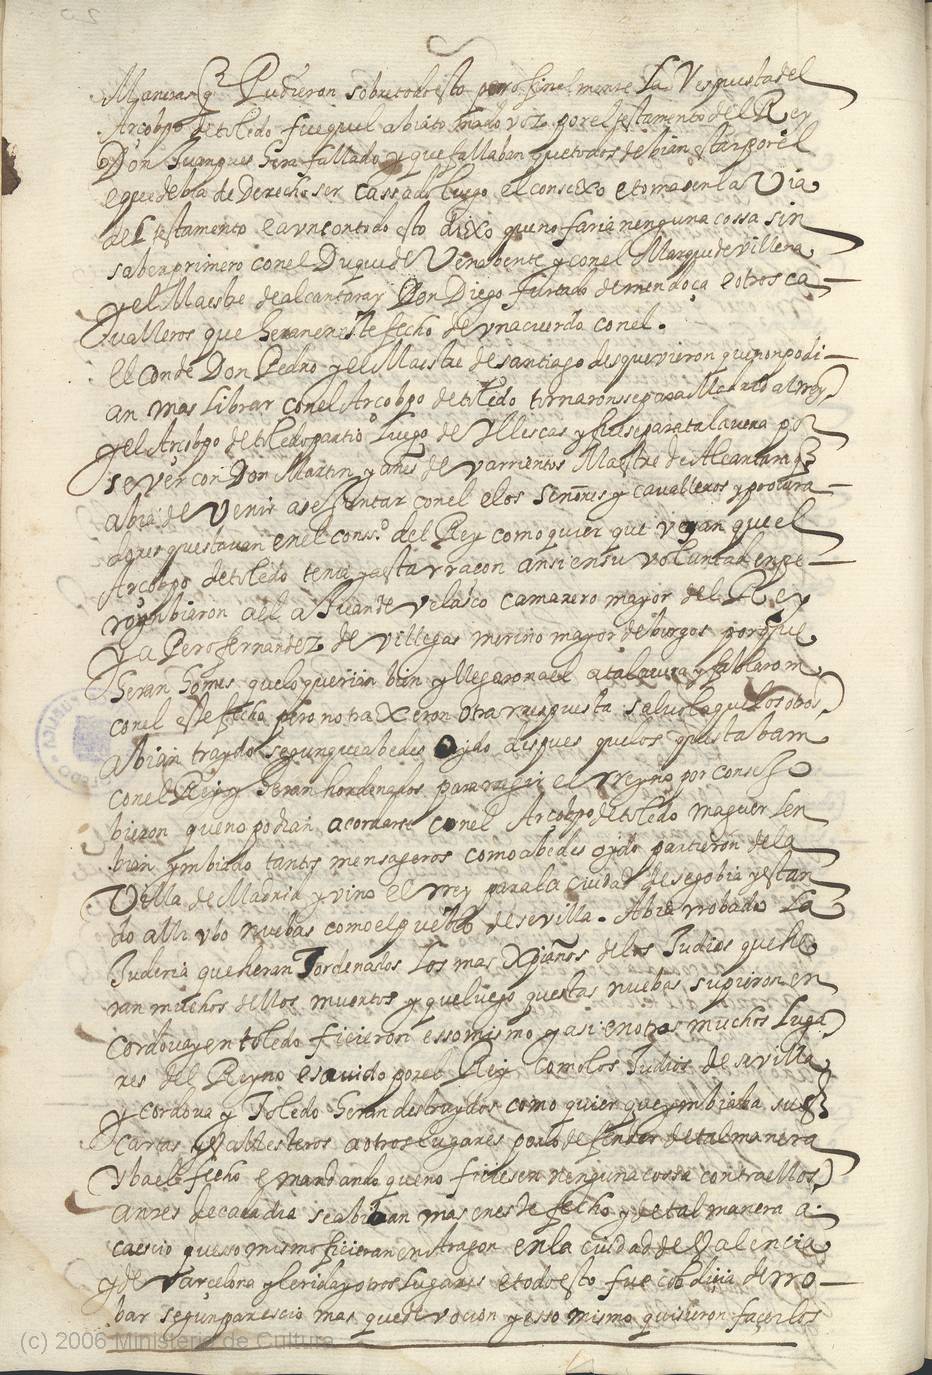 Maneras q Pudieron sobretodo esto pero finalmente La Respuesta del
Arcobpo de toledo fue quel abia tomado voz por el testamento del Rey
Don Juan pues hera fallado y que fallaban que todos debian estar por el
e que debia de Derecho ser casado luego el consexo e tomasen la Via
del testamento e aun con todo esto dixo que no faria ninguna cossa sin
saber primero con el Duque de Venabente y con el Marques de Villena
y el Maestre de alcantara y Don Diego furtado de mendoça e otros ca
valleros que heran en este fecho de un acuerdo con el.
El conde Don Pedro y el Maestre de santiago des que vieron que non podi
an mas Librar con el Arcobpo de toledo tornaronse para Madrid al rrey
y el Arcobpo de toledo partio Luego de Yllescas y fuese para talavera por
se ver con Don Martin yañes de varrientos Maestre de Alcantara q
abia de Venir a se Juntar con el e los señores y cavalleros y procura
dores questavan en el cons.º del Rey como quier que veyan que el
Arcobpo de toledo tenia ya esta rraçon ansi en su voluntad enpe
ro ynbiaron a el a Juan de Velasco camarero mayor del Rey
Y a Pero fernandez de Villegas merino mayor de burgos porque
heran homes que lo querian bien y llegaron a el a talavera y fablaron
con el este fecho pero no traxeron otra rrespuesta salvo la que los otros
abian traydo segun que abedes oydo despues que los questaban
con el Rey y heran hordenados para regir el rreyno por consejo
bieron que no podian acordarse con el Arcobpo de toledo maguer Len
bian ymbiado tantos mensageros como abedes oydo partieron de la
Villa de Madrid y vino el rrey para la ciudad de segobia y estan
do alli ubo nuebas como el pueblo de sevilla. Abia rrobado La
Juderia que heran Tordenados Los mas xpianos de los Judios que he
ran muchos dellos muertos y que luego questas nuebas supieron en
Cordova y en toledo ficieron esso mismo y asi en otros muchos Luga
res del Reyno e savido por el Rey como los Judios de sevilla
y cordova y Toledo heran destruydos como quier que ymbiaba sus
cartas y Vallesteros a otros lugares por los defender de tal manera
yba el fecho e mandando que no ficiesen ninguna cossa contra ellos
antes de cada dia se abiban mas en este fecho y de tal manera a
caescio que esso mismo ficieran en Aragon en la ciudad de Valencia
y de Varcelona y lerida y otros lugares e todo esto fue codicia de rro
bar segun parescio mas que devocion y esso mismo quisieron façer los
(c) 2006 Ministerio de Cultura